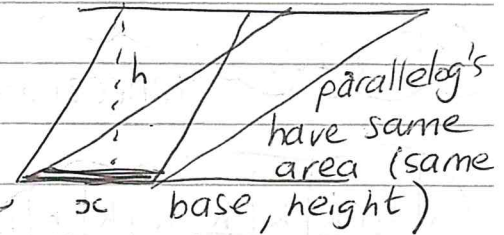 h
parallelog's
have same
area (same
x base, height)